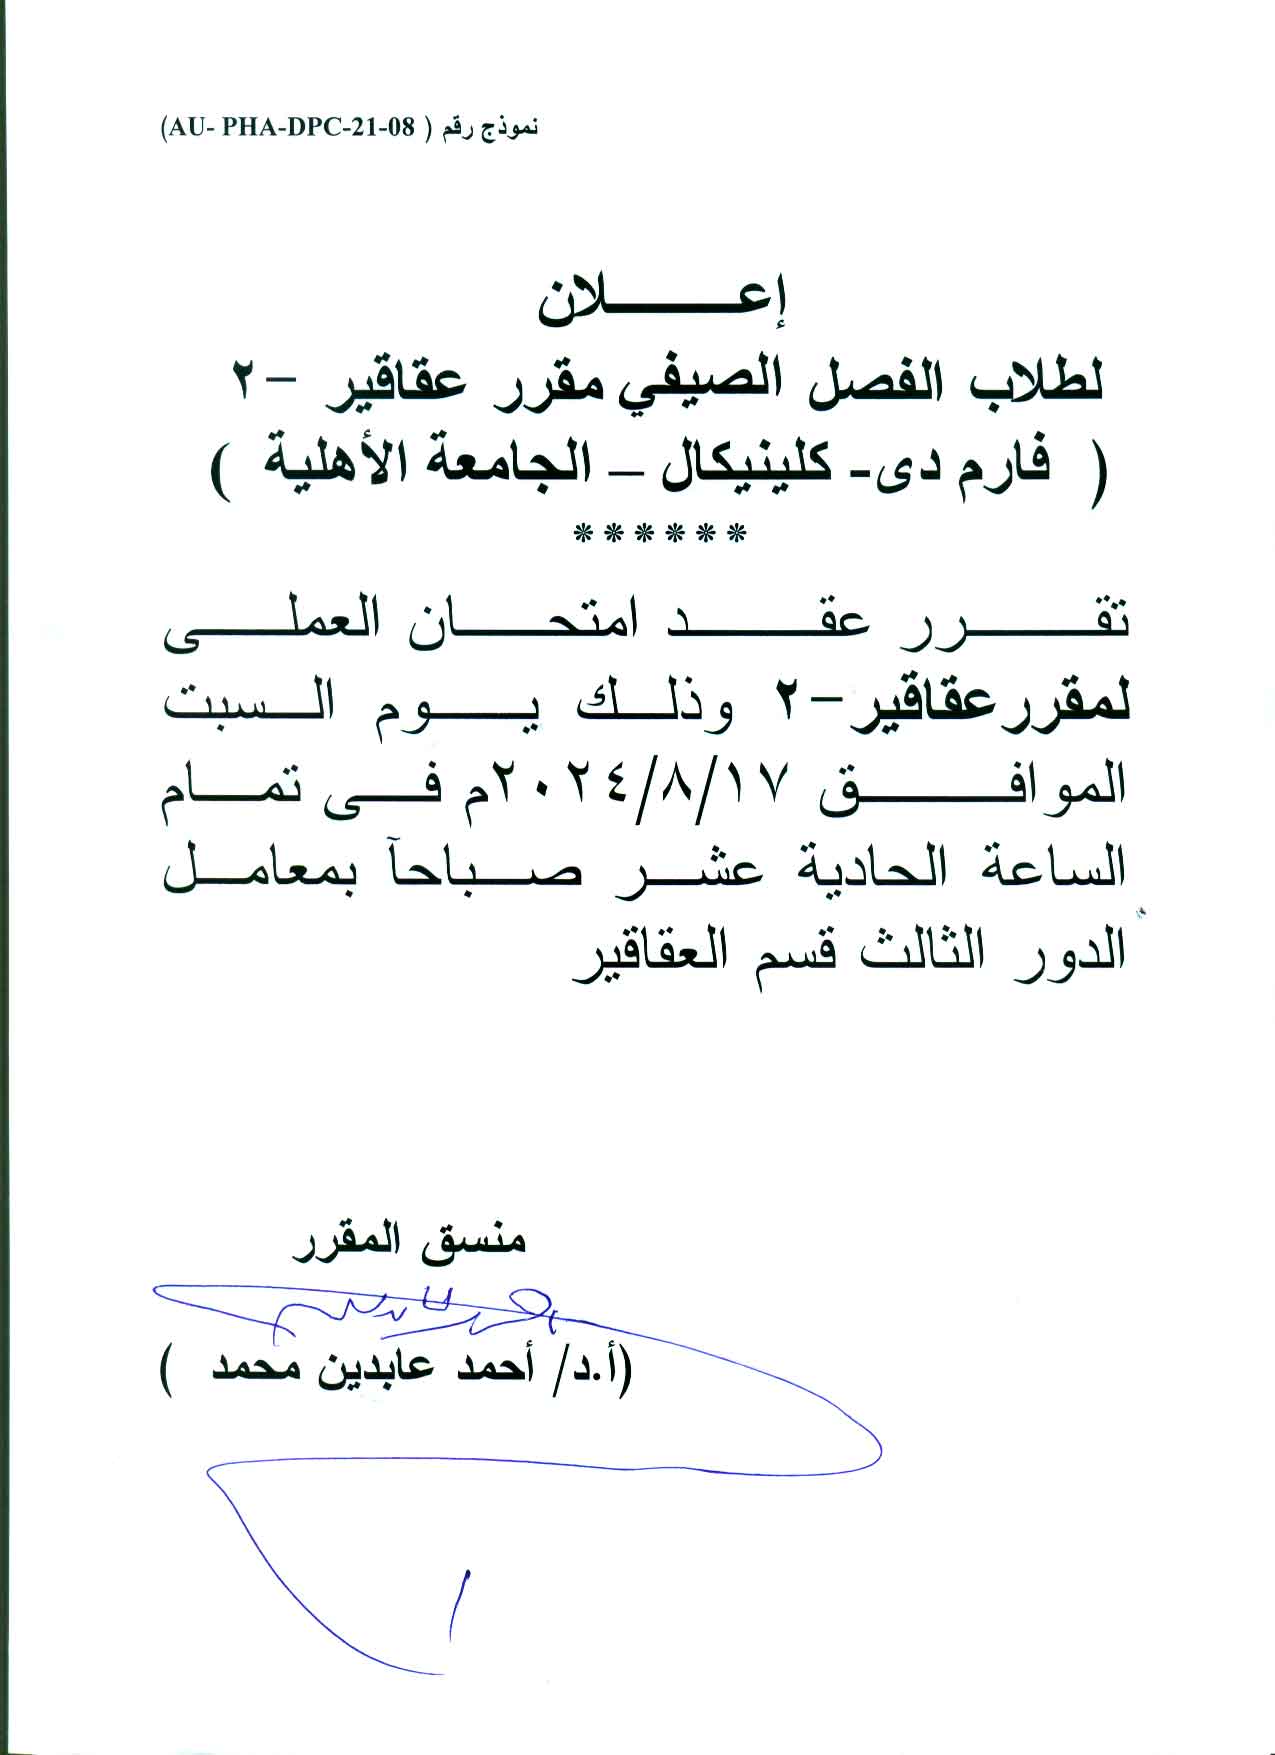 نموذج رقم ( AU- PHA-DPC-21-08)
إعـــــــلان
لطلاب الفصل الصيفي مقرر عقاقير – ٢
( فارم دى- كلينيكال – الجامعة الأهلية )
******
تقـــــرر عقـــــد امتحـــــان العملـــــى
لمقرر عقاقير – ٢ وذلـك يـــوم الـسبت
الموافـــــــق ٢٠٢٤/٨/١٧م فـــى تمـــام
الساعة الحادية عشـر صـباحآ بمعامـل
الدور الثالث قسم العقاقير
منسق المقرر
(أ.د/ أحمد عابدين محمد )